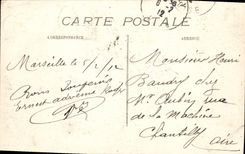 CARTE POSTALE
CORRESPONDANCE
ADRESSE
Marseille le 5/2/12
Bons Souvenirs
Ernest
Monsieur Henri
Baudry chez
Mr Aubry rue
de la Machine
Chantilly
Oise